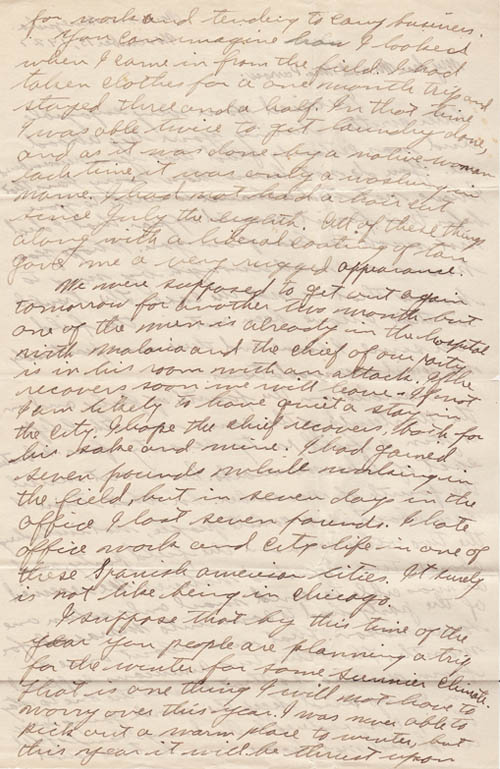 for work and tending to camp business.
You can imagine how I looked
when I came in from the field. I had
taken clothes for a one month trip and
stayed three and a half. In that time
I was able twice to get laundry done,
and as it was done by a native woman
each time, it was only a washing in
name. I had not had a hair cut
since July the eighth. All of these things
along with a liberal coating of tan
gave me a very rugged appearance.
We were supposed to get out again
tomorrow for another two month but
one of the men is already in the hospital
with malaria and the chief of our party
is in his room with an attack. If he
recovers soon we will leave. If not
I am likely to have quit a stay in
the city. I hope the chief recovers, both for
his sake and mine. I had gained
seven pounds while working in
the field, but in seven day in the
office I lost seven pounds. I hate
office work and city life in one of
these Spanish american cities. It surely
is not like being in Chicago.
I suppose that by this time of the
year you people are planning a trip
for the winter for some sunnier climate.
That is one thing I will not have to
worry over this year. I was never able to
pick out a warm place to winter, but
this year it will be thrust upon